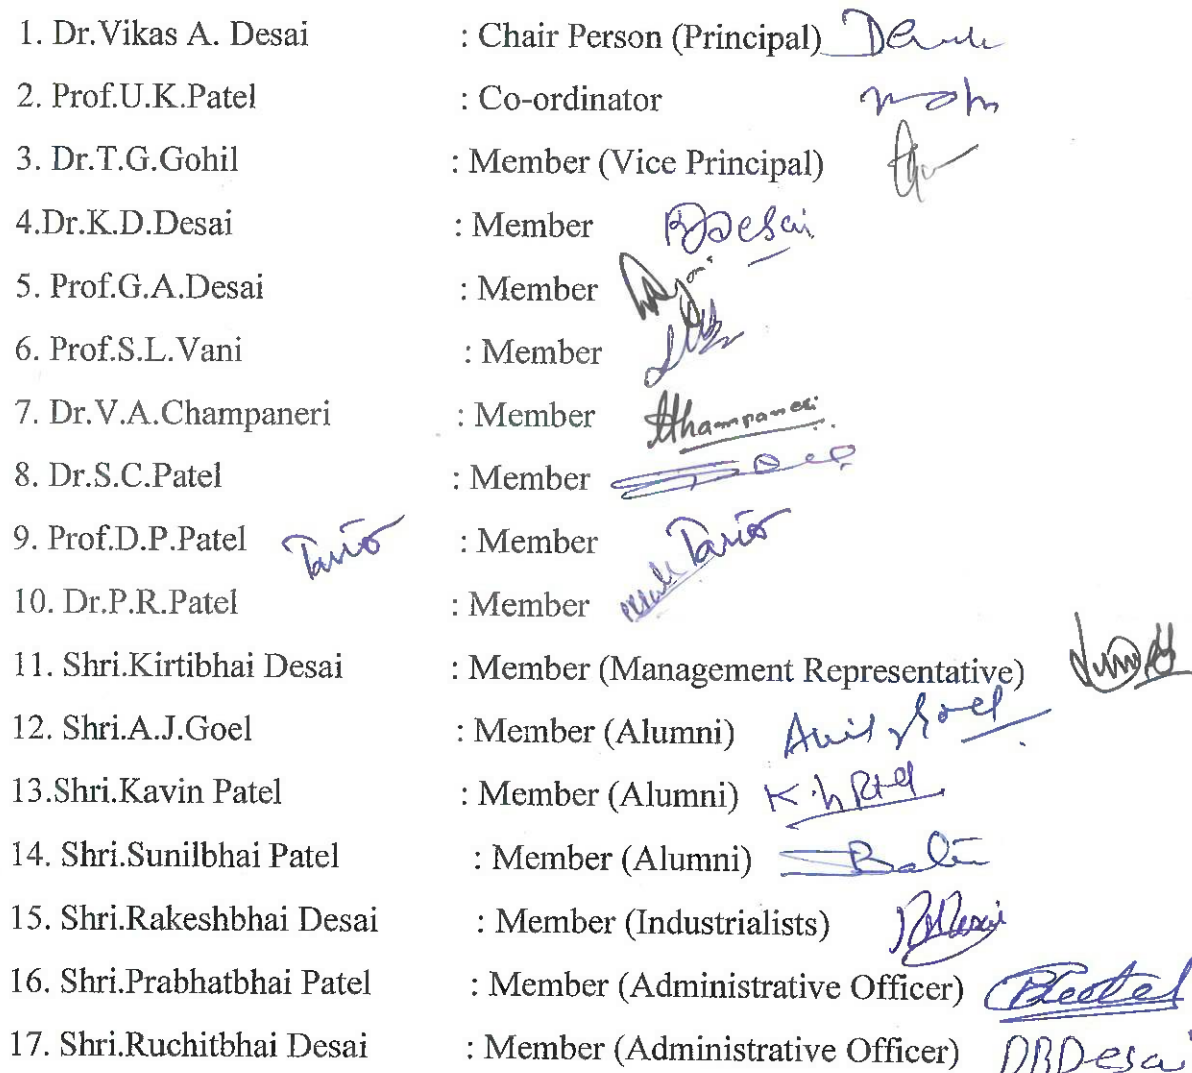 1. Dr.Vikas A. Desai : Chair Person (Principal)
2. Prof.U.K.Patel : Co-ordinator
3. Dr.T.G.Gohil : Member (Vice Principal)
4.Dr.K.D.Desai : Member KDDesai
5. Prof.G.A.Desai : Member
6. Prof.S.L.Vani : Member
7. Dr.V.A.Champaneri : Member
8. Dr.S.C.Patel : Member
9. Prof.D.P.Patel : Member
10. Dr.P.R.Patel : Member
11. Shri.Kirtibhai Desai : Member (Management Representative)
12. Shri.A.J.Goel : Member (Alumni) Anil Goel
13.Shri.Kavin Patel : Member (Alumni)
14. Shri.Sunilbhai Patel : Member (Alumni)
15. Shri.Rakeshbhai Desai : Member (Industrialists)
16. Shri.Prabhatbhai Patel : Member (Administrative Officer)
17. Shri.Ruchitbhai Desai : Member (Administrative Officer) DRDesai